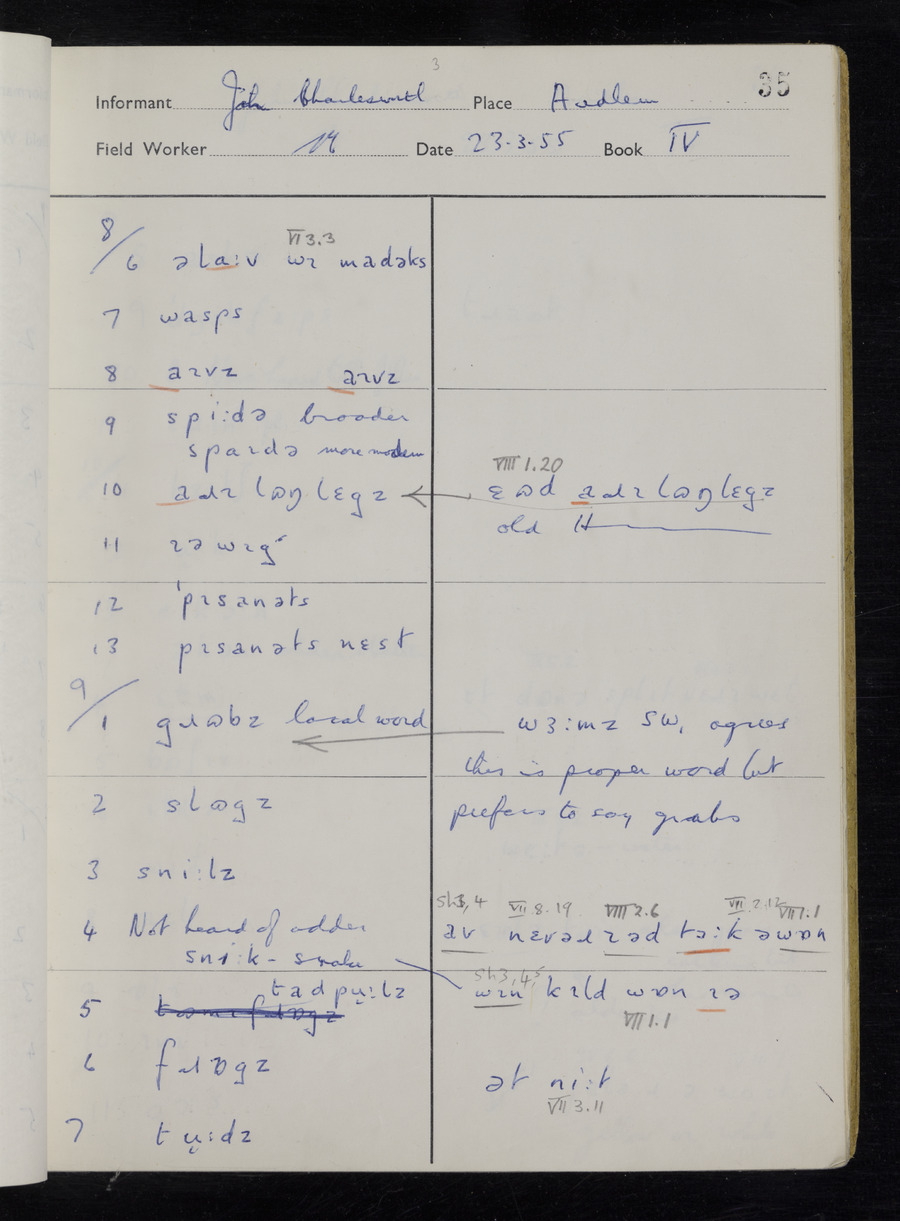 3
35
Informant John Charlesworth Place Audlem
Field Worker Date 23.3.55 Book IV
VI 3.3
8/6 əla:v wɪ madəks
7 wasps
8 aɪvz aɪvz
9 spi:də broader
spaɪdə more modern
VIII 1.20
10 adɪ lɒŋlegz ← ɛɒd adɪ lɒŋlegz
old H
11 ɪəwɪg
12 'pɪsanəts
13 pɪsanəts nɛst
9/1 gɹɒbz local word ← wɜ:mz SW, agrees
this is proper word but
2 slɒgz
prefers to say grubs
3 sni:lz
Sh3,4 VII 8.19 VIII 2.6 VII 2.12 VII 1.1
4 Not heard of adder av nɛvəɹ ɪəd tə:k əwɒn
sni:k - snake
Sh3,4,5
tadpu:lz wɪn kɪld wɒn ɪə
5
VII 1.1
6 fɹɒgz
ət ni:t
VII 3.11
7 tu:dz